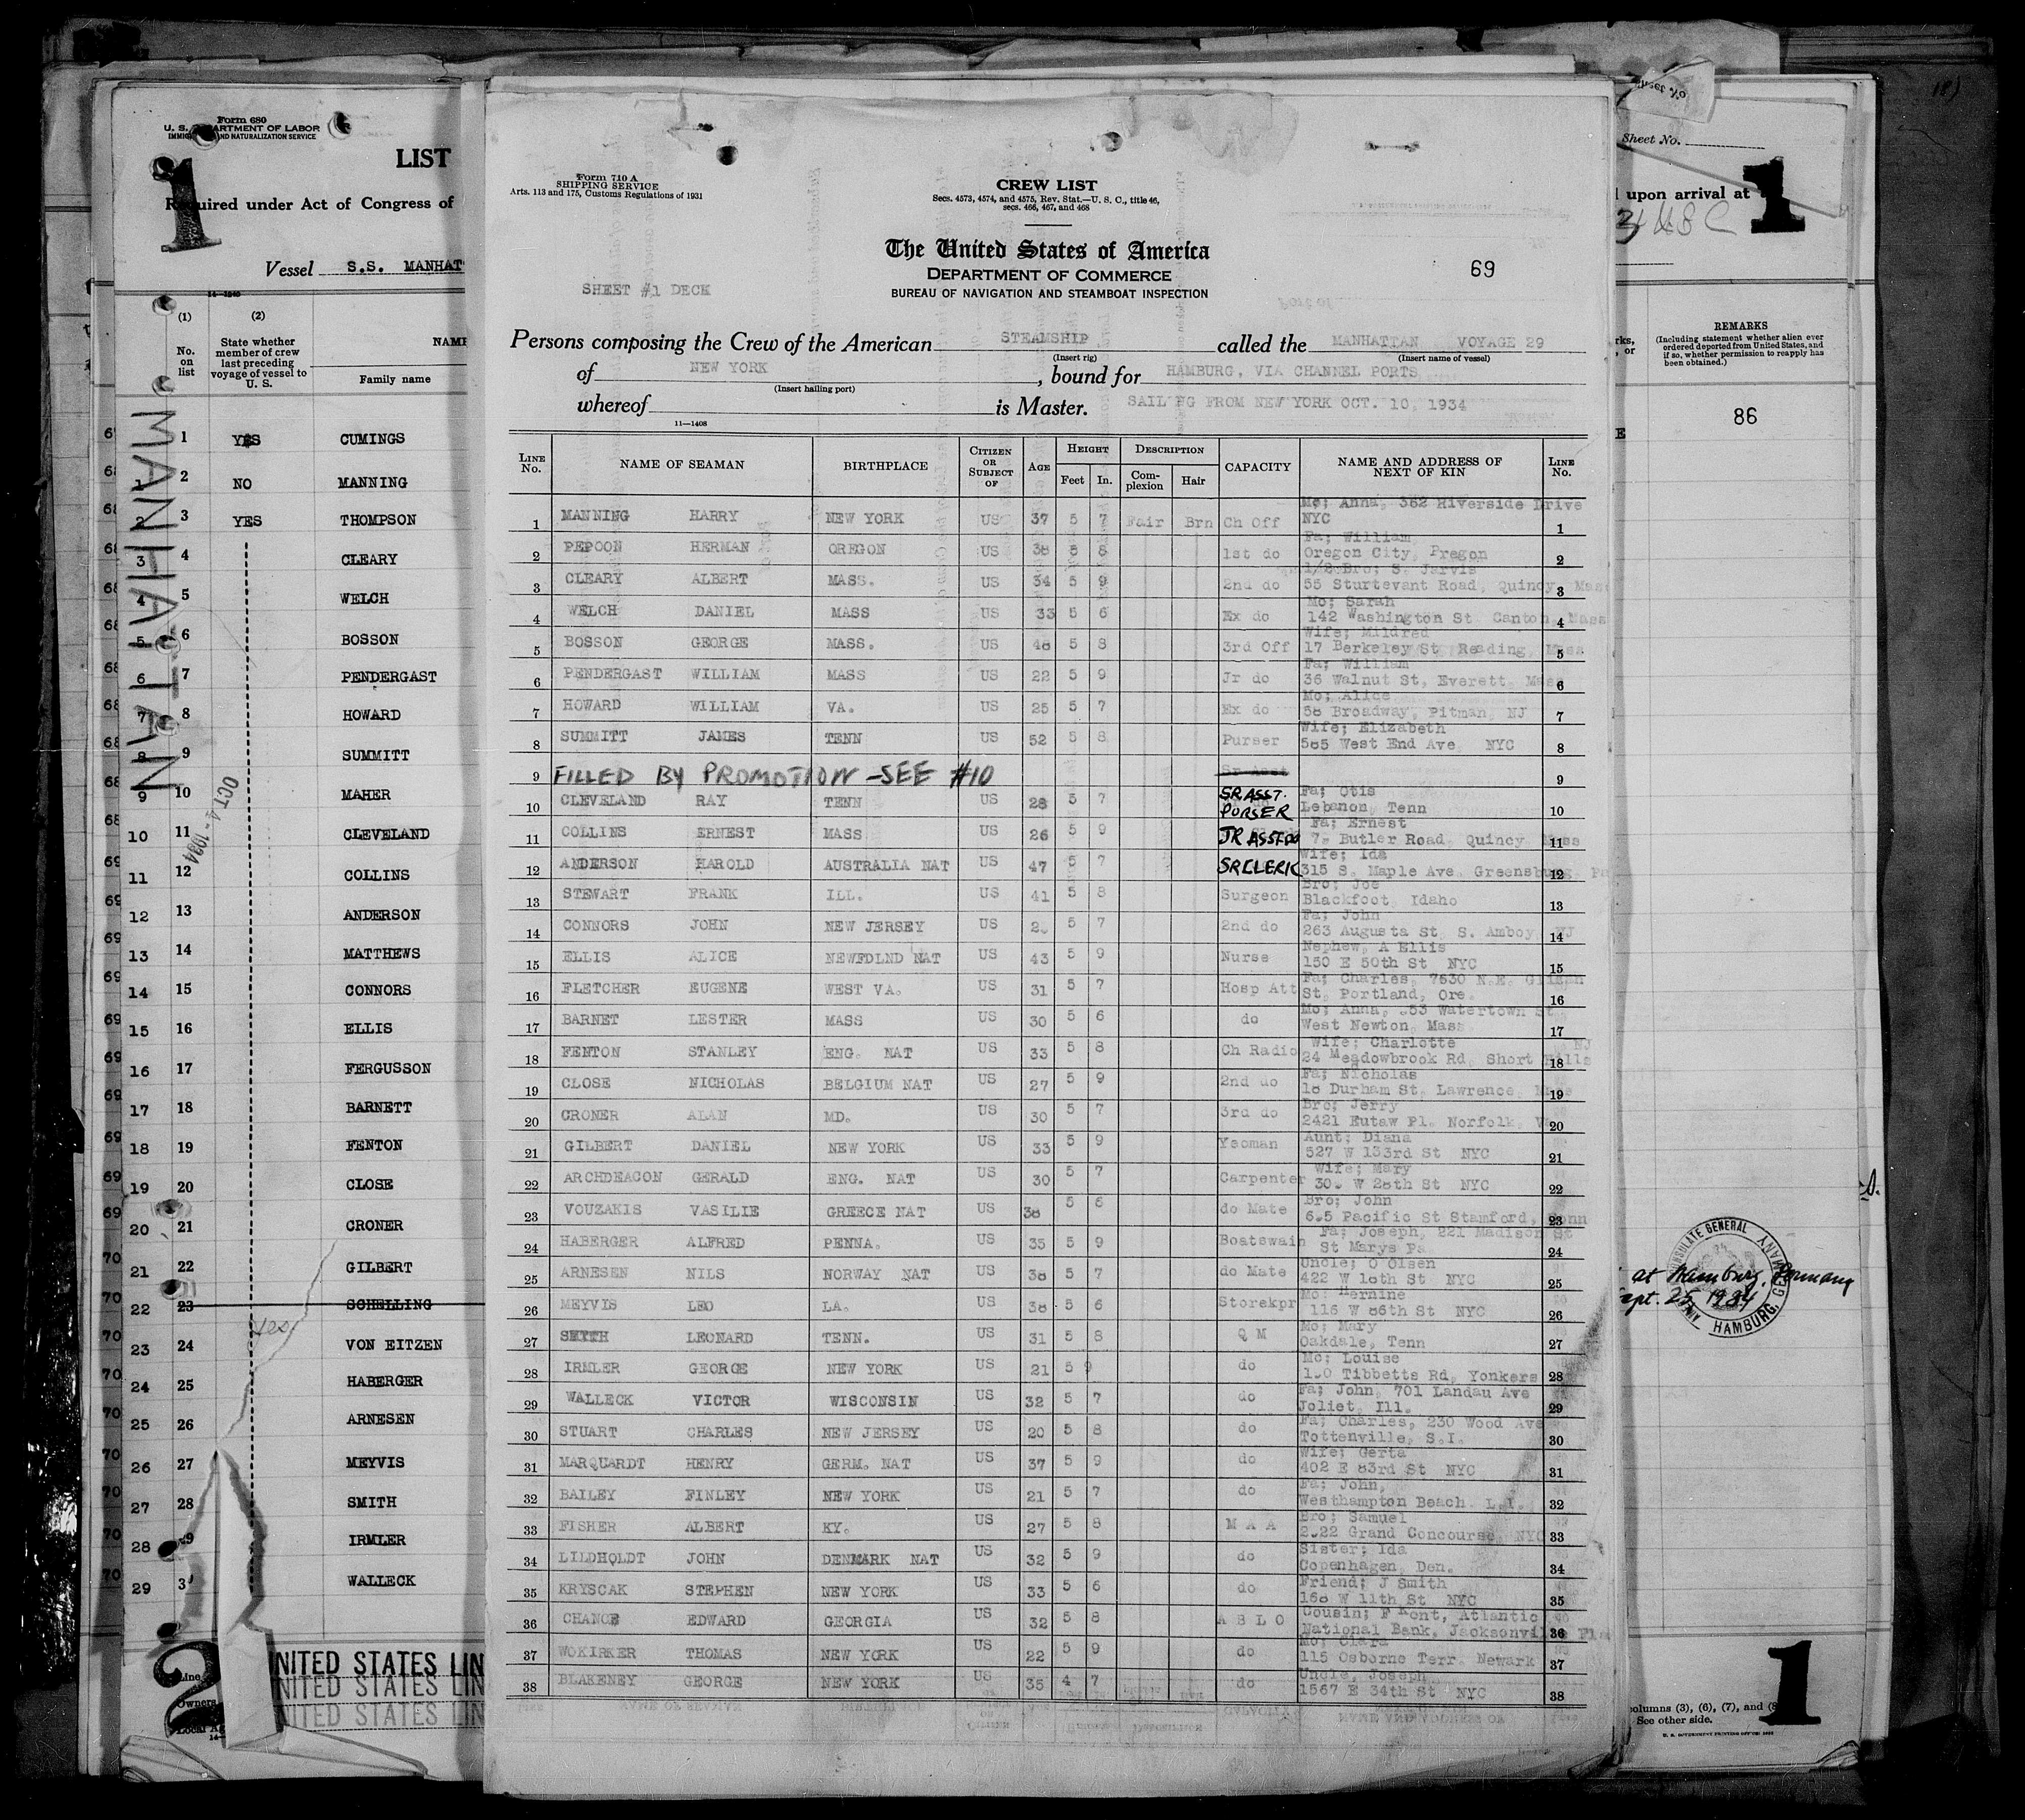 Form 680
U. S. DEPARTMENT OF LABOR
IMMIGRATION AND NATURALIZATION SERVICE
1
LIST
Required under Act of Congress of
Vessel S.S. MANHAT
(1) (2)
No. on list
State whether member of crew last preceding voyage of vessel to U. S.
NAME
Family name
MANHATTAN
OCT 4 - 1934
1 YES CUMINGS
2 NO MANNING
3 YES THOMPSON
4 CLEARY
5 WELCH
6 BOSSON
7 PENDERGAST
8 HOWARD
9 SUMMITT
10 MAHER
11 CLEVELAND
12 COLLINS
13 ANDERSON
14 MATTHEWS
15 CONNORS
16 ELLIS
17 FERGUSSON
18 BARNETT
19 FENTON
20 CLOSE
21 CRONER
22 GILBERT
23 SCHELLING
24 VON EITZEN
25 HABERGER
26 ARNESEN
27 MEYVIS
28 SMITH
29 IRMLER
WALLECK
2
NITED STATES LIN
NITED STATES LIN
NITED STATES LIN
Line
Owners
Form 710 A
SHIPPING SERVICE
Arts. 113 and 175, Customs Regulations of 1931
CREW LIST
Secs. 4573, 4574, and 4575, Rev. Stat.—U. S. C., title 46,
secs. 466, 467, and 468
The United States of America
DEPARTMENT OF COMMERCE
BUREAU OF NAVIGATION AND STEAMBOAT INSPECTION
69
SHEET #1 DECK
Persons composing the Crew of the American STEAMSHIP called the MANHATTAN VOYAGE 29
(Insert rig) (Insert name of vessel)
of NEW YORK, bound for HAMBURG, VIA CHANNEL PORTS
(Insert hailing port)
whereof is Master. SAILING FROM NEW YORK OCT. 10, 1934
11—1408
LINE No. NAME OF SEAMAN BIRTHPLACE CITIZEN OR SUBJECT OF AGE HEIGHT Feet In. DESCRIPTION Complexion Hair CAPACITY NAME AND ADDRESS OF NEXT OF KIN LINE No.
1 MANNING HARRY NEW YORK US 37 5 7 Fair Brn Ch Off Mo; Anna, 362 Riverside Drive NYC 1
2 PEPOON HERMAN OREGON US 38 5 8 1st do Fa; William Oregon City, Pregon 2
3 CLEARY ALBERT MASS. US 34 5 9 2nd do 1/2 Bro; S. Jarvis 55 Sturtevant Road, Quincy Mass 3
4 WELCH DANIEL MASS US 33 5 6 Ex do Mo; Sarah 142 Washington St Canton, Mass 4
5 BOSSON GEORGE MASS. US 48 5 8 3rd Off Wife; Mildred 17 Berkeley St Reading, Mass 5
6 PENDERGAST WILLIAM MASS US 22 5 9 Jr do Fa; William 36 Walnut St, Everett, Mass 6
7 HOWARD WILLIAM VA. US 25 5 7 Ex do Mo; Alice 58 Broadway, Pitman, NJ 7
8 SUMMITT JAMES TENN US 52 5 8 Purser Wife; Elizabeth 585 West End Ave NYC 8
9 FILLED BY PROMOTION - SEE #10 Sr Asst 9
10 CLEVELAND RAY TENN US 28 5 7 SR ASST. PURSER Fa; Otis Lebanon Tenn 10
11 COLLINS ERNEST MASS US 26 5 9 JR ASST DO Fa; Ernest Butler Road, Quincy Mass 11
12 ANDERSON HAROLD AUSTRALIA NAT US 47 5 7 SR CLERK Wife; Ida 315 S. Maple Ave, Greensburg, Pa 12
13 STEWART FRANK ILL. US 41 5 8 Surgeon Bro; Joe Blackfoot, Idaho 13
14 CONNORS JOHN NEW JERSEY US 5 7 2nd do Fa; John 263 Augusta St, S. Amboy, NJ 14
15 ELLIS ALICE NEWFDLND NAT US 43 5 9 Nurse Nephew, A Ellis 150 E 50th St NYC 15
16 FLETCHER EUGENE WEST VA. US 31 5 7 Hosp Att Fa; Charles, 7630 N.E. St, Portland, Ore. 16
17 BARNET LESTER MASS US 30 5 6 do Mo; Anna, Watertown St West Newton, Mass 17
18 FENTON STANLEY ENG. NAT US 33 5 8 Ch Radio Wife; Charlotte 24 Meadowbrook Rd, Short Hills NJ 18
19 CLOSE NICHOLAS BELGIUM NAT US 27 5 9 2nd do Fa; Nicholas 18 Durham St, Lawrence, Mass 19
20 CRONER ALAN MD. US 30 5 7 3rd do Bro; Jerry 2421 Eutaw Pl. Norfolk, Va 20
21 GILBERT DANIEL NEW YORK US 33 5 9 Yeoman Aunt; Diana 527 W 133rd St NYC 21
22 ARCHDEACON GERALD ENG. NAT US 30 5 7 Carpenter Wife; Mary W 28th St NYC 22
23 VOUZAKIS VASILIE GREECE NAT US 38 5 6 do Mate Bro; John Pacific St Stamford, Conn 23
24 HABERGER ALFRED PENNA. US 35 5 9 Boatswain Fa; Joseph, 221 Madison St St Marys Pa. 24
25 ARNESEN NILS NORWAY NAT US 38 5 7 do Mate Uncle; O Olsen 422 W 18th St NYC 25
26 MEYVIS LEO LA. US 38 5 6 Storekpr Mo; Hernine 116 W 86th St NYC 26
27 SMITH LEONARD TENN. US 31 5 8 Q M Mo; Mary Oakdale, Tenn 27
28 IRMLER GEORGE NEW YORK US 21 5 9 do Mo; Louise Tibbetts Rd, Yonkers 28
29 WALLECK VICTOR WISCONSIN US 32 5 7 do Fa; John, 701 Landau Ave Joliet, Ill. 29
30 STUART CHARLES NEW JERSEY US 20 5 8 do Fa; Charles, 230 Wood Ave Tottenville, S.I. 30
31 MARQUARDT HENRY GERM. NAT US 37 5 9 do Wife; Gerta 402 E 83rd St NYC 31
32 BAILEY FINLEY NEW YORK US 21 5 7 do Fa; John, Westhampton Beach. L.I. 32
33 FISHER ALBERT KY. US 27 5 8 M A A Bro; Samuel Grand Concourse, NYC 33
34 LILDHOLDT JOHN DENMARK NAT US 32 5 9 do Sister; Ida Copenhagen, Den. 34
35 KRYSCAK STEPHEN NEW YORK US 33 5 6 do Friend; J Smith 168 W 11th St NYC 35
36 CHANCE EDWARD GEORGIA US 32 5 8 A B L O Cousin; F Kont, Atlantic National Bank, Jacksonville Fla 36
37 WOKIRKER THOMAS NEW YORK US 22 5 9 do Mo; Clara 115 Osborne Terr. Newark 37
38 BLAKENEY GEORGE NEW YORK US 35 4 7 do Uncle, Joseph 1567 E 34th St NYC 38
Sheet No.
upon arrival at
1
REMARKS
(Including statement whether alien ever
ordered deported from United States, and
if so, whether permission to reapply has
been obtained.)
86
at Hamburg, Germany
Sept. 25 1934
HAMBURG, GERMANY
columns (3), (6), (7), and (8
See other side.
U. S. GOVERNMENT PRINTING OFFICE
1